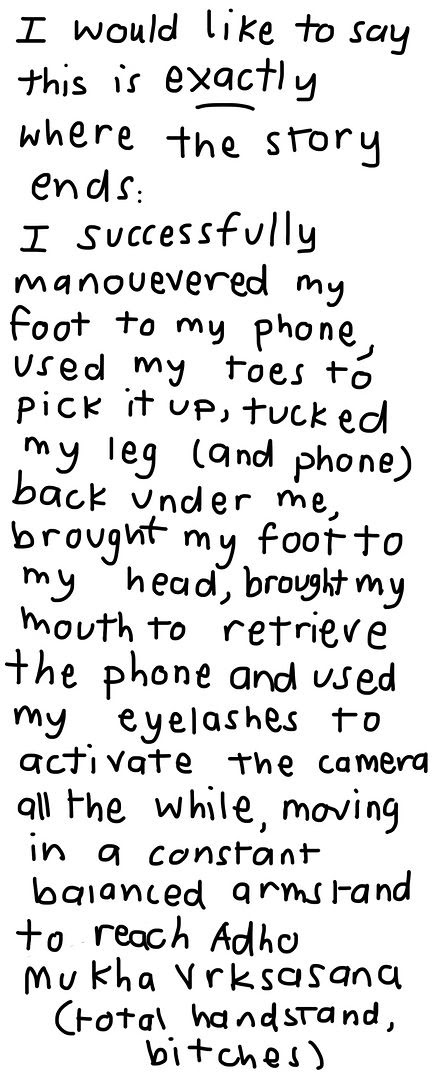 I would like to say
this is exactly
where the story
ends:
I successfully
manouevered my
foot to my phone,
used my toes to
pick it up, tucked
my leg (and phone)
back under me,
brought my foot to
my head, brought my
mouth to retrieve
the phone and used
my eyelashes to
activate the camera
all the while, moving
in a constant
balanced armstand
to reach Adho
Mukha Vrksasana
(total handstand,
bitches)